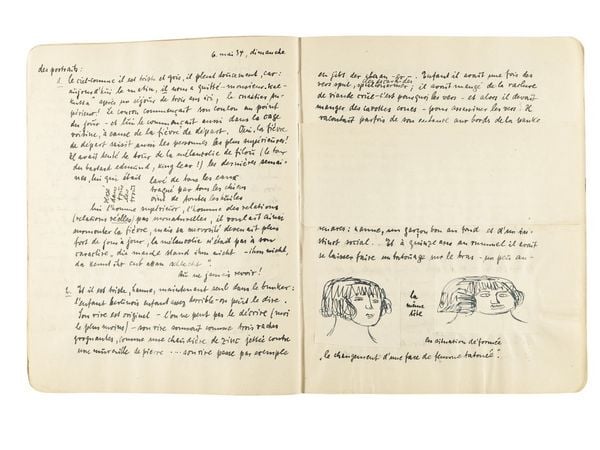 6. mai 34, dimanche
des portraits:
1. le ciel comme il est triste et gris, il pleut doucement, car:
aujourd'hui le matin, il nous a quitté - monsieur
après un séjour de trois ans ici, le
commença son au point
du jour - et lui commençait aussi dans la cage
voisine, à cause de la fièvre de départ. Oui, la fièvre
de départ saisit aussi les personnes les plus supérieures!
Il avait tenté le tour de la mélancolie de filou (le tour
du bastard edmund, king lear!) les dernières semai-
nes, lui qui était
lavé de tous les eaux
traqué par tous les chiens
oint de toutes les huiles
lui l'homme supérieur, l'homme des relations
(relations réelles, pas surnaturelles, il voulait ainsi
surmonter la fièvre, mais sa morosité devenait plus
fort de jour à jour, la mélancolie n'était pas à son
caractère, die maske stand ihm nicht - ihm nicht,
da kennt ihr schlecht".
Au ne jamais revoir!
2. Il est si triste, hanne, maintenant seul dans le bunker:
l'enfant berlinois enfant assez horrible on peut le dire.
Son rire est originel - l'on ne peut pas le décrire (moi
le plus moins) - son rire sonnait comme trois vaches
grognantes, comme une chaudière de zinc jettée contre
une muraille de pierre ... son rire passe par exemple
en fis der - fis -. Enfant il avait une fois des
vers; il avait mangé de la
de viande crue - c'est pourquoi les vers - et alors il devait
manger des carottes crues - pour assassiner les vers. Il
racontait parfois de son enfance aux bords de la panke
hanne, un garçon bon au fond et d'un in-
stinct social... Et à quinze ans au rummel il avait
se laisser faire un tatouage sur le bras - un peu au-
la
même
tête
en situation déformée
"le changement d'une face de femme tatouée".